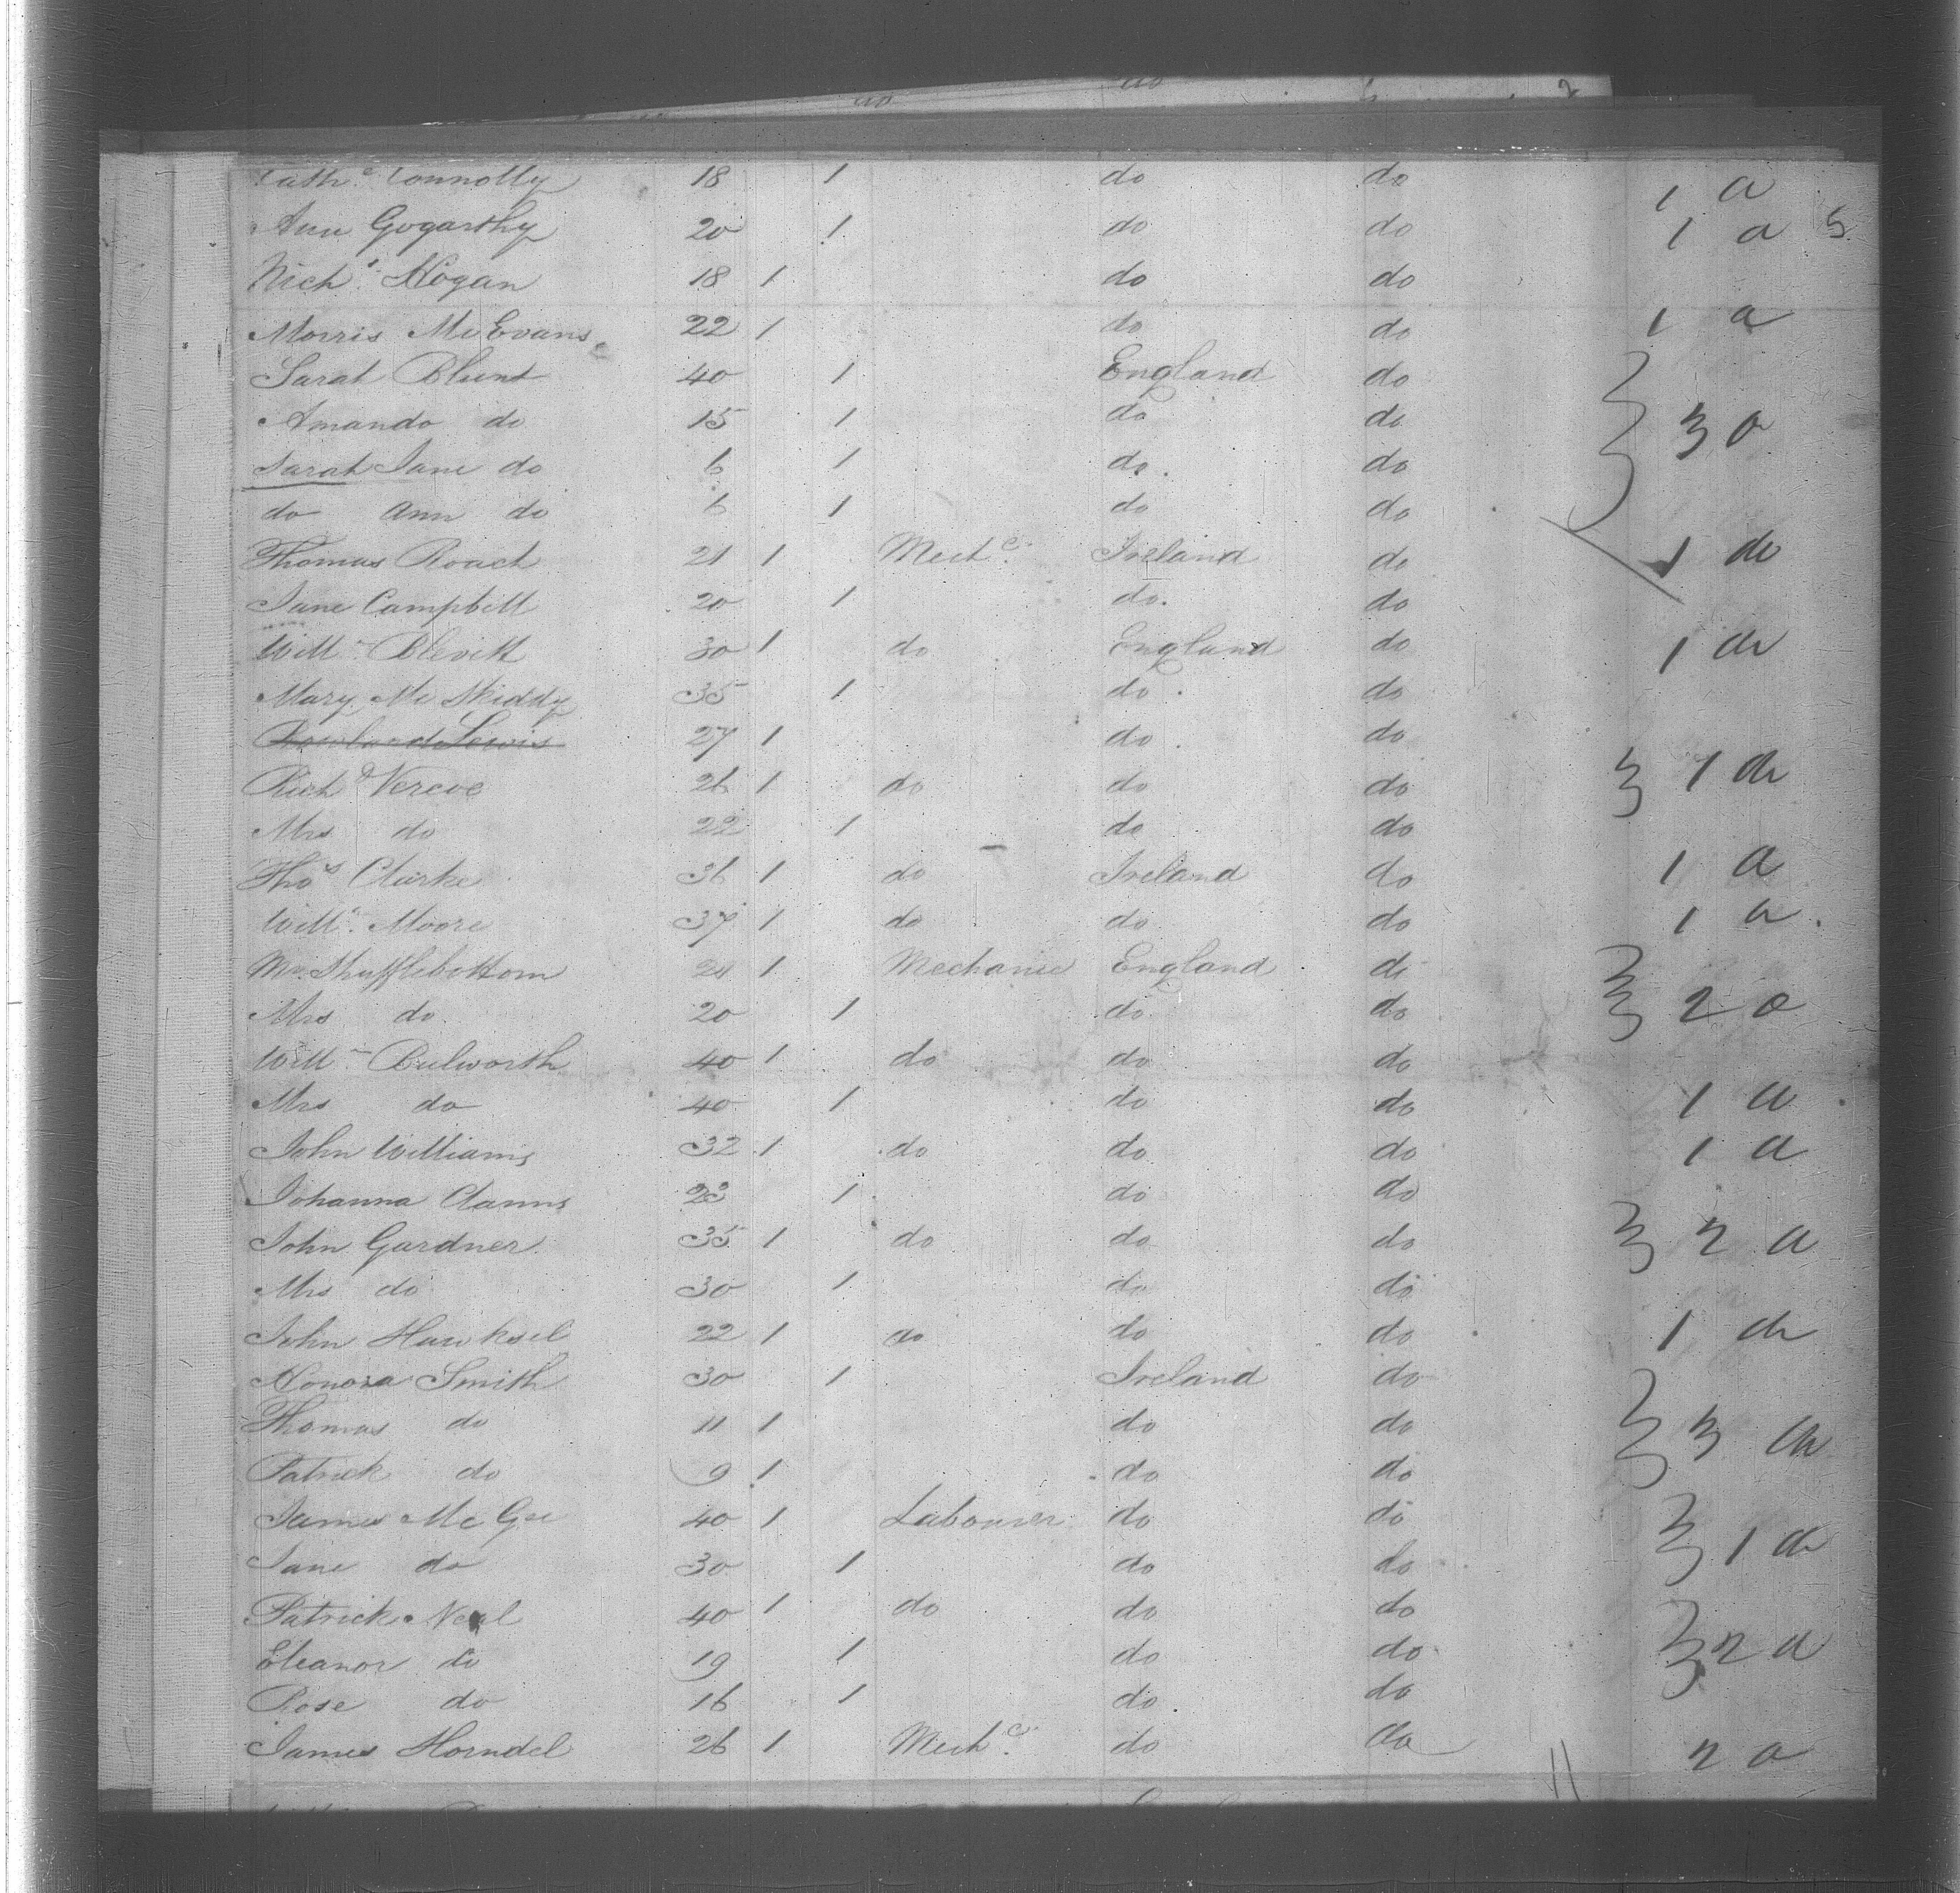 Cath.e Connolly 18 1 do do 1 a
Ann Gogarthy 20 1 do do 1 a 5
Nich.s Hogan 18 1 do do
Morris McEvans 22 1 do do 1 a
Sarah Blunt 40 1 England do
Amanda do 15 1 do do 3 a
Sarah Jane do 6 1 do. do
do Ann do 6 1 do do
Thomas Roach 21 1 Mech.c Ireland do 1 do
Jane Campbell 20 1 do. do
Will.m Blevitt 30 1 do England do 1 do
Mary Mc Skiddy 35 1 do. do
Rowland Lewis 27 1 do. do
Rich.d Vercoe 26 1 do do do 1 do
Mrs do 22 1 do do
Tho.s Clarke 36 1 do Ireland do 1 a
Will.m Moore 37 1 do do do 1 a.
Mr. Shufflebottom 24 1 Mechanic England do
Mrs do 20 1 do do 2 a
Will.m Bulworth 40 1 do do do
Mrs do 40 1 do do 1 a
John Williams 32 1 do do do 1 a
Johanna 23 1 do do
John Gardner 35 1 do do do 2 a
Mrs do 30 1 do do
John 22 1 do do do 1 do
Honora Smith 30 1 Ireland do
Thomas do 11 1 do do 3
Patrick do 9 1 do do
James McGee 40 1 Labourer do do
Jane do 30 1 do do 1 do
Patrick Neal 40 1 do do do
Eleanor do 19 1 do do 2 a
Rose do 16 1 do. do
James Horndel 26 1 Mech.c do do 2 a